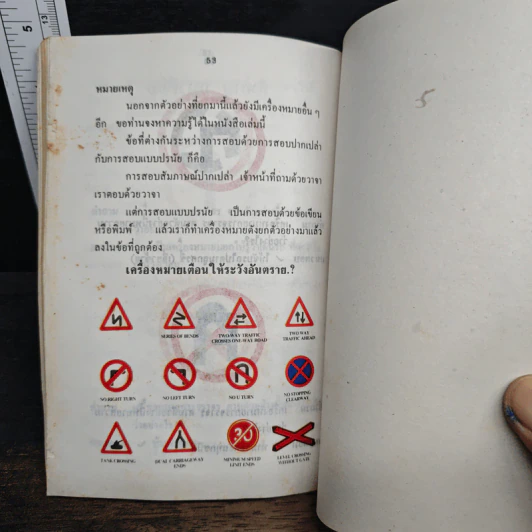 53
หมายเหตุ
นอกจากตัวอย่างที่ยกมานี้แล้วยังมีเครื่องหมายอื่น ๆ
อีก ขอท่านจงหาความรู้ได้ในหนังสือเล่มนี้
ข้อที่ต่างกันระหว่างการสอบด้วยการสอบปากเปล่า
กับการสอบแบบปรนัย ก็คือ
การสอบสัมภาษณ์ปากเปล่า เจ้าหน้าที่ถามด้วยวาจา
เราตอบด้วยวาจา
แต่การสอบแบบปรนัย เป็นการสอบด้วยข้อเขียน
หรือพิมพ์ แล้วเราก็ทำเครื่องหมายดังยกตัวอย่างมาแล้ว
ลงในข้อที่ถูกต้อง
เครื่องหมายเตือนให้ระวังอันตราย.?
SERIES OF BENDS
TWO-WAY TRAFFIC
CROSSES ONE-WAY ROAD
TWO WAY
TRAFFIC AHEAD
NO RIGHT TURN
NO LEFT TURN
NO U TURN
NO STOPPING
CLEARWAY
TANK CROSSING
DUAL CARRIAGEWAY
ENDS
30
LIMIT ENDS
LEVEL CROSSING
WITHOUT GATE
5
5
13